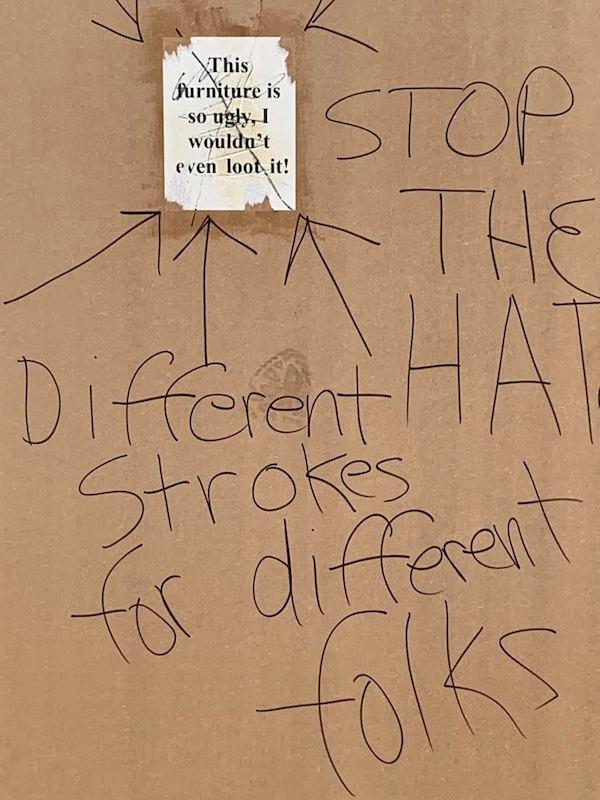 This
furniture is
so ugly, I
wouldn't
even loot it!
STOP
THE
HAT
Different
Strokes
for different
folks